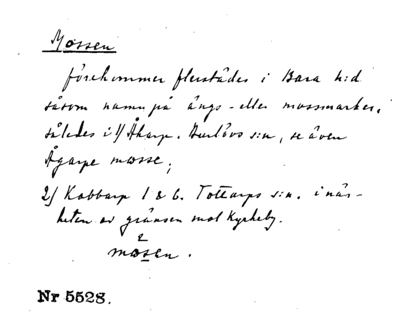 Mossen
förekommer flerstädes i Bara h:d
såsom namn på ängs- eller mossmarker,
således i 1/ Åkarp. Burlövs s:n, se även
Ågarpe mosse;
2/ Kabbarp 1 & 6. Tottarps s:n. i när-
heten av gränsen mot Kyrkeby.
mosen.
Nr 5528.